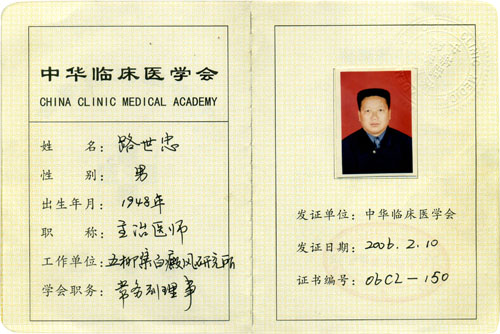 中华临床医学会
CHINA CLINIC MEDICAL ACADEMY
姓 名：路世忠
性 别：男
出生年月：1948年
职 称：主治医师
工作单位：五柳集白癜风研究所
学会职务：常务副理事
发证单位：中华临床医学会
发证日期：2006.2.10
证书编号：06CL-150